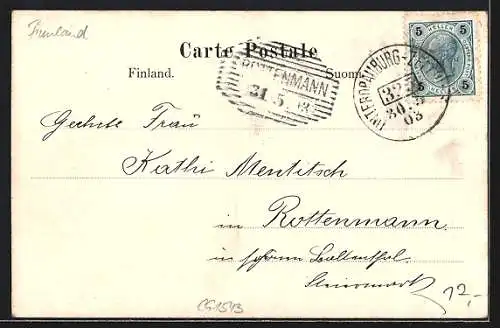 Finnland
Carte Postale
Finland.
Suomi
ROTTENMANN
31 5 03
UNTERDRAUBURG-
30 5
03
5 HELLER 5
5 5
Geehrte Frau
Kathi Mentitsch
in
Rottenmann
in
Steiermark
12,-